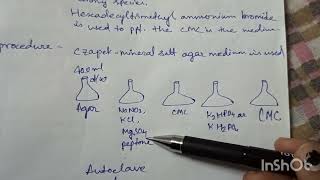 species.
Hexadecyltrimethyl ammonium bromide
is used to ppt. the CMC in the medium
procedure - Czapek-mineral salt agar medium is used
400ml
d/w
Agar
NaNO3,
KCl,
MgSO4
peptone
CMC
K2HPO4 or
KH2PO4
CMC
Autoclave
InShot